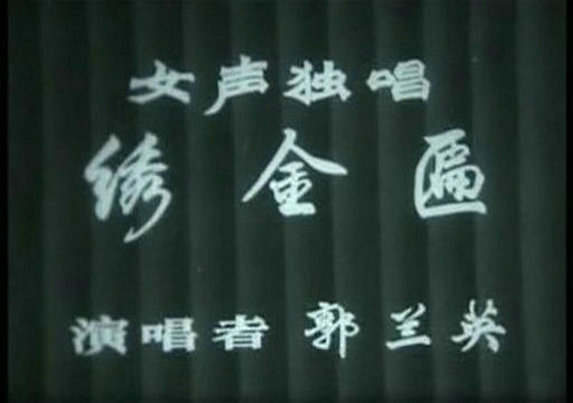 女声独唱
绣金匾
演唱者 郭兰英